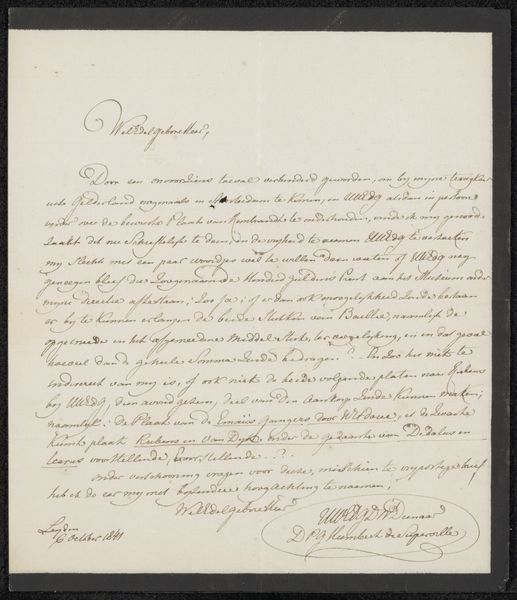 WelEdelgeboreHeer,
Door een onvoorziene toeval verhinderd geworden, om bij mijne terugkomst
uit Gelderland nogmaals in Amsterdam te komen, en UWEDG aldaar in persoon
nader over de bewuste Plaat van Rembrandt te onderhouden, vinde ik mij genood-
zaakt dit nu Schriftelijk te doen, en de vrijheid te neemen UWEDG te verzoeken
my slechts met een paar woordjes wel te willen doen weeten of UWEDG nog
geneegen bleef die Zoogenaamde Honderd guldens Prent aan het Museum onder
mijne directie afstaan; Zoo Ja; of er dan ook mogelykheid Zoude bestaan
er by te kunnen erlangen de beide Stukken van Baillie, namelijk de
opgewerkte en het afgesneedene Middel Stuk, ter vergelyking, en in dat geval
hoeveel dan de geheele Somma Zoude bedragen? En Zoo het niet te
indiscreet van my is, of ook niet de beide volgende platen naar
by UWEDG, dien avond gezien, deel van den aankoop Zoude kunnen maken;
naamelijk: de Plaat van de Emaüs gangers door WitDoeck, en de Zwarte
Kunst plaat Rubens en Van Dyk, onder de gedaante van Dedalus en
Icarus voorstellende, door,
onder verschooning vragen voor deze, misschien te importune brief
heb ik de eer my met byzondere hoogachting te noemen,
WelEdelgeboreHeer
UWEDG DW Dienaar
D P G Humbert de Superville
Leyden
6 October 1841